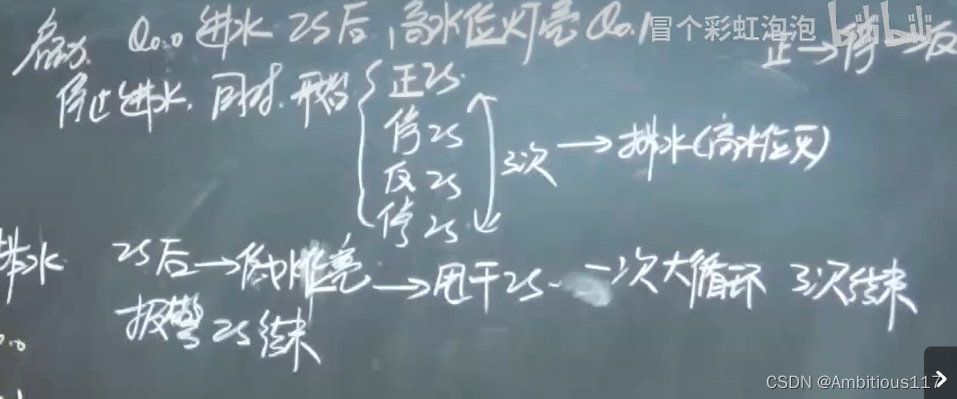 启动 Q0.0 进水 2S后,高水位灯亮 Q0.1
冒个彩虹泡泡 bilibili
正→停→反
停止进水, 同时, 开始
正2S
停2S
反2S
停2S
3次 → 排水(高水位灭)
排水 2S后→低水位亮→甩干2S 一次大循环 3次结束
报警2S结束
CSDN @Ambitious117